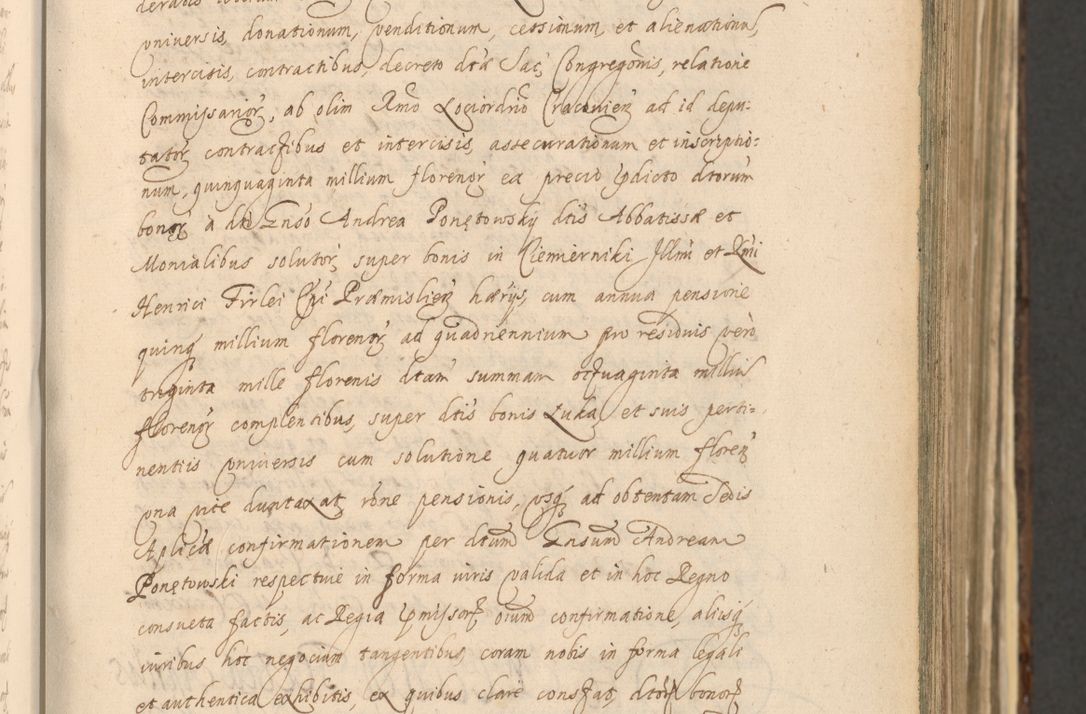 universis, donationum, venditionum, cessionum, et alienationum,
intercisis, contractibus, decreto dtæ Sac, Congregonis, relatione
Commissarior, ab olim Rmo Lociordrio Cracovien ad id depu:
tator contractibus et intercisis, assecurationum et inscriptio:
num, quinquaginta millium florenor ex precio pdicto dtorum
bonor à dto Gnso Andrea Ponętowsky dtis Abbatissæ et
Monialibus solutor, super bonis in Ciemierniki Illmi et Rmi
Henrici Firlei Epi Præmislien hærijs, cum annua pensione
quinq millium florenor ad quadriennium pro residuis vero
triginta mille florenis dtam summam octuaginta milliu
florenor complentibus, super dtis bonis Luka, et suis perti-
nentiis universis cum solutione quatuor millium floren
una vice duntaxat, rone pensionis, usq ad obtentam Sedis
Aplicæ confirmationem per dtum Gnsum Andream
Ponętowski respective in forma iuris valida et in hoc Regno
consueta factis, ac Regia pmissor oium confirmatione, aliisq
iuribus hoc negocium tangentibus, coram nobis in forma legali
et authentica exhibitis, ex quibus clare constat, dtor bonor